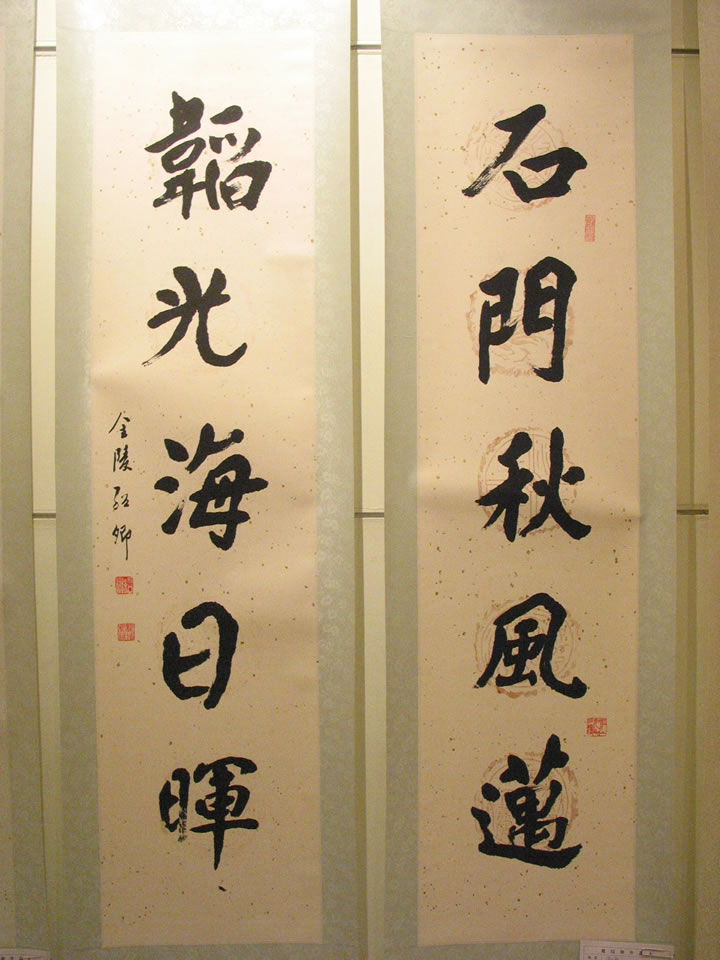 石門秋風邁
韜光海日暉
金陵 卿